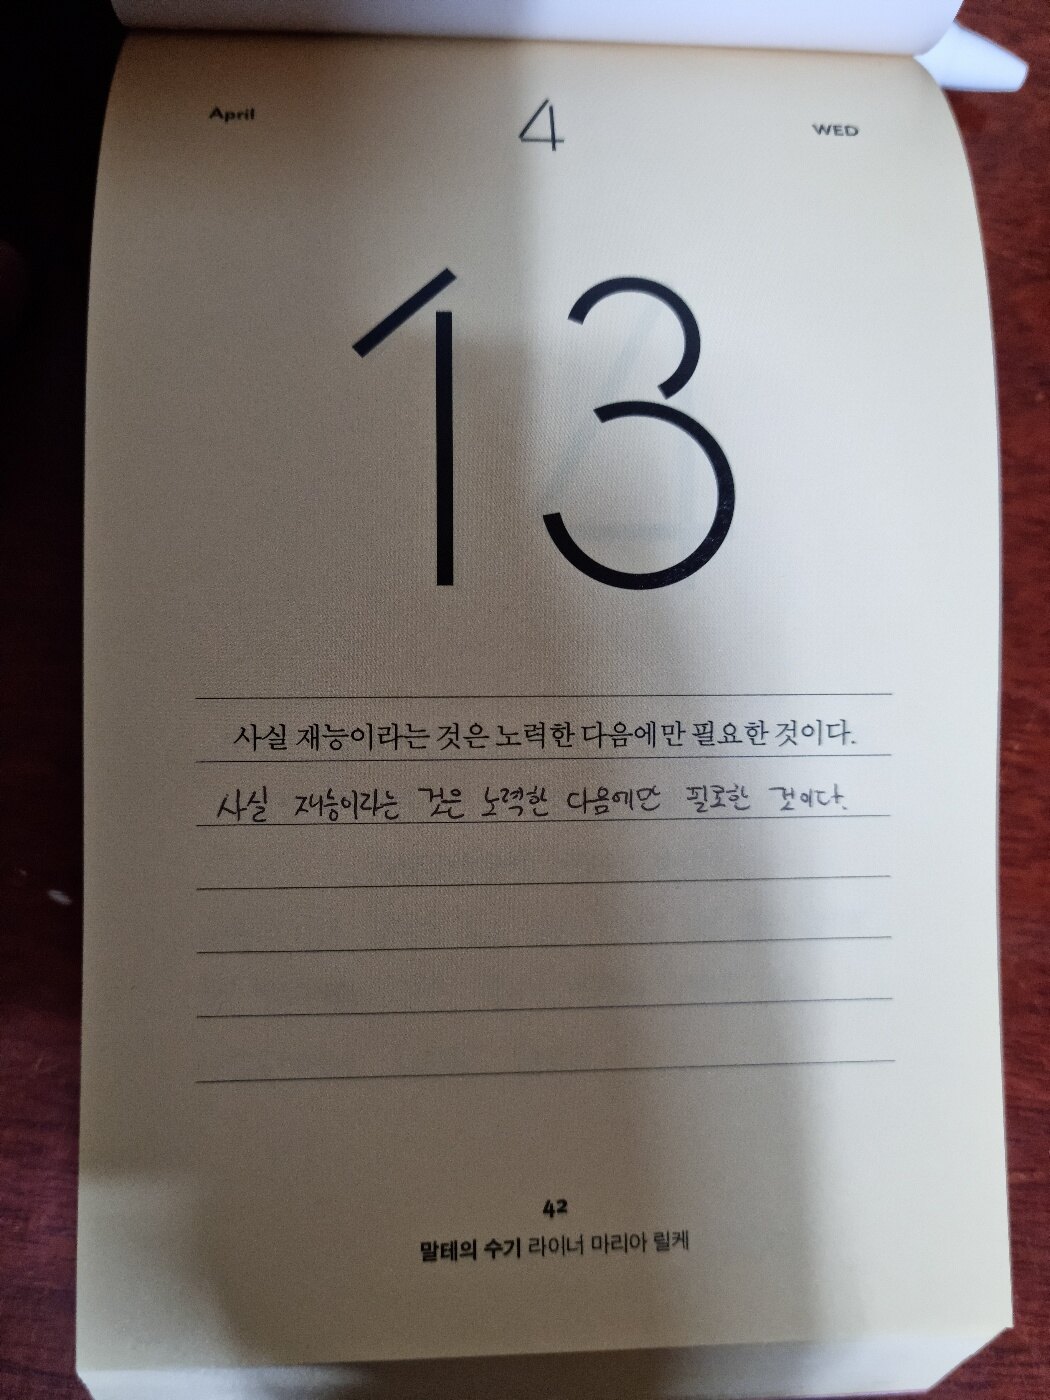 April 4 WED
13
사실 재능이라는 것은 노력한 다음에만 필요한 것이다.
사실 재능이라는 것은 노력한 다음에만 필요한 것이다.
42
말테의 수기 라이너 마리아 릴케